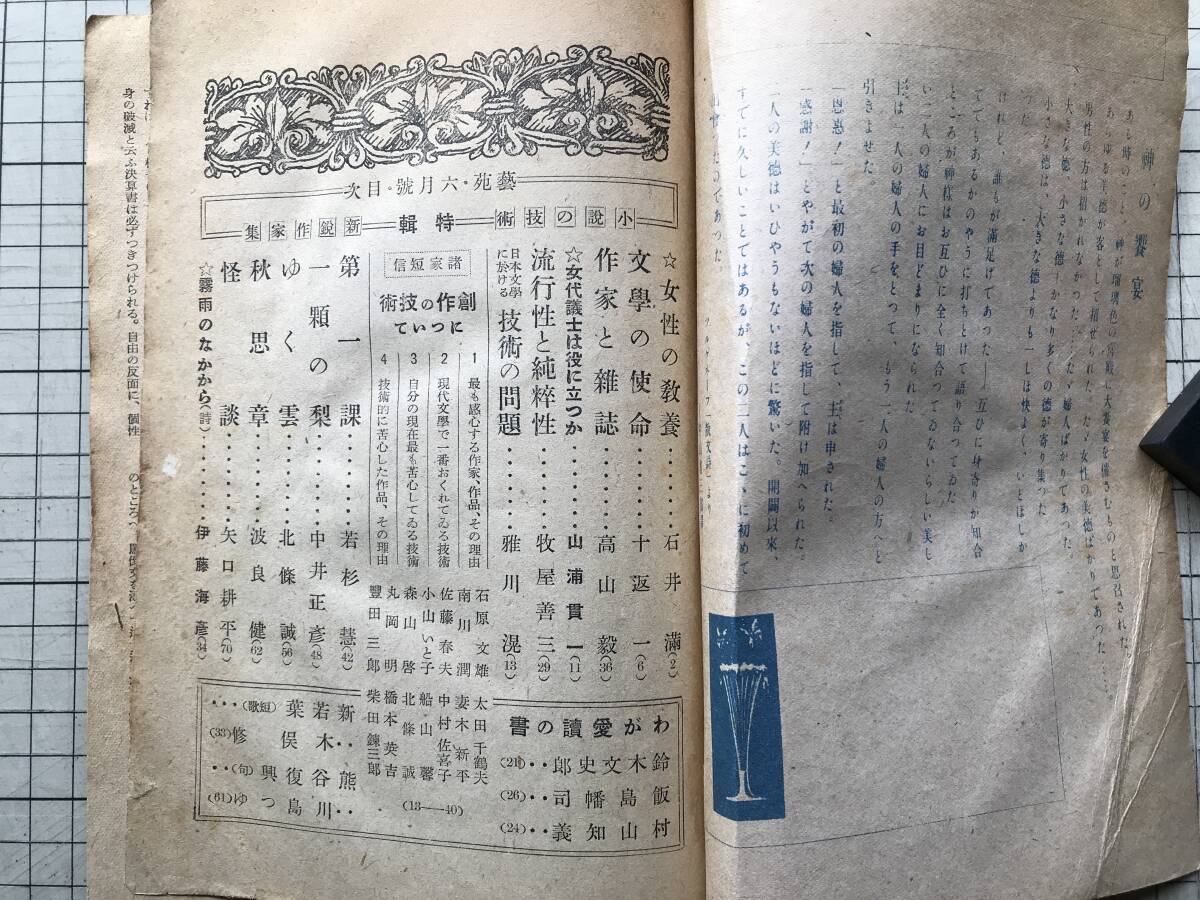 神の饗宴
ある時のこと、神が瑠璃色の宮殿に大饗宴を催さむものと思召された。
あらゆる美徳が客として招ぜられた。たゞ女性の美徳ばかりであった
男性の方は招かれなかった……たゞ婦人ばかりであった。
大きな徳、小さな徳、かなり多くの徳が寄り集った
小さな徳は、大きな徳よりも一しほ快よく、いとほしか
った
けれど、誰もが満足げであった――互ひに身寄りか知合
ででもあるかのやうに打ちとけて語り合つてゐた
と、あが神様はお互ひに全く知合つてゐないらしい美し
い二人の婦人にお目どまりになられた
主は一人の婦人の手をとつて、もう一人の婦人の方へと
引きよせた。
「恩恵！」と最初の婦人を指して、主は申された。
「感謝！」とやがて次の婦人を指して附け加へられた。
二人の美徳はいひやうもないほどに驚いた。開闢以来、
すでに久しいことではあるが、この二人はこゝに初めて
出會したのであった
藝苑・六月號・目次
小説の技術 特輯 新鋭作家集
☆女性の教養………石井滿(2)
文學の使命………十返一(6)
作家と雜誌………高山毅(36)
☆女代議士は役に立つか………山浦貫一(11)
流行性と純粹性………牧屋善三(29)
日本文學に於ける技術の問題………雅川滉(13)
諸家短信
創作の技術について
1 最も感心する作家、作品、その理由
2 現代文學で一番おくれてゐる技術
3 自分の現在最も苦心してゐる技術
4 技術的に苦心した作品、その理由
石原文雄
南川潤
佐藤春夫
小山いと子
森山啓
丸岡明
豐田三郎
太田千鶴夫
妻木新平
中村佐喜子
船山馨
北條誠
橋本英吉
柴田錬三郎
(13――40)
第一課………若杉慧(42)
一顆の梨………中井正彦(48)
ゆく雲………北條誠(56)
秋思章………波良健(62)
怪談………矢口耕平(70)
☆霧雨のなかから(詩)………伊藤海彦(34)
わが愛讀の書
鈴木文史郎(21)
飯島幡司(26)
村山知義(24)
新若葉(短歌)…
熊木俣修(33)
新興俳句…
谷川島復興(句)…ゆつ(61)
身の破滅と云ふ決算書は必ずつきつけられる。自由の反面に、個性
のところへ